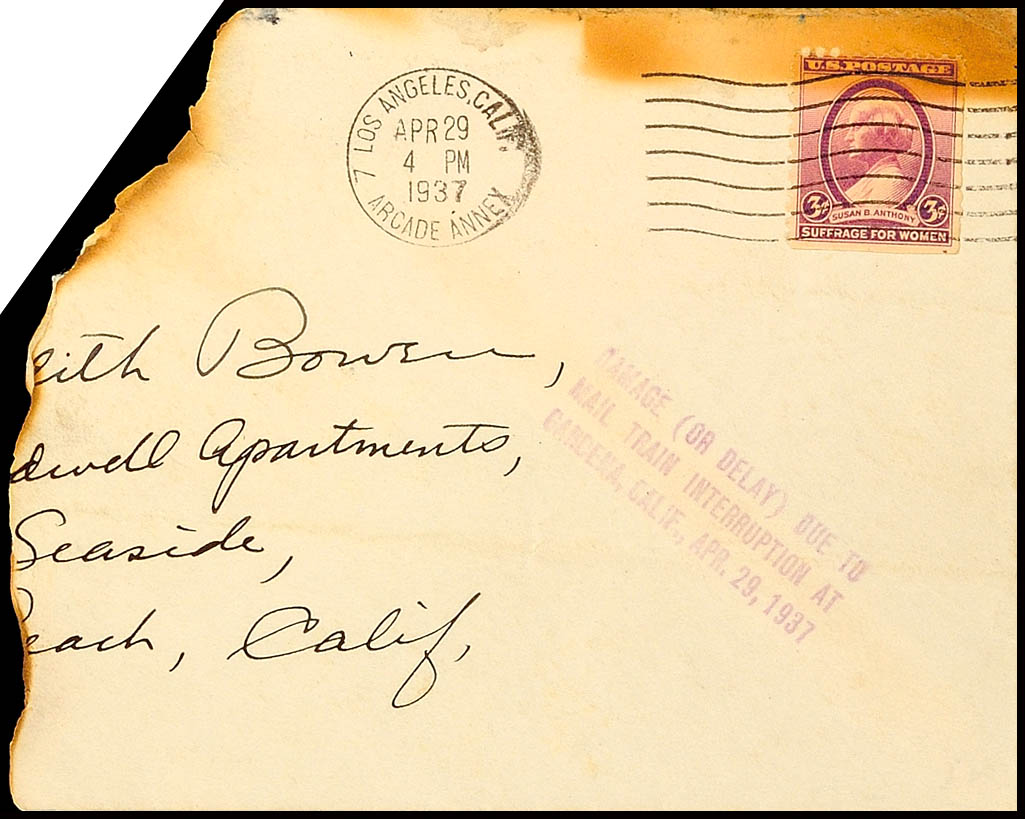 LOS ANGELES, CALIF.
7
APR 29
4 PM
1937
ARCADE ANNEX
U.S. POSTAGE
3¢ 3¢
SUSAN B. ANTHONY
SUFFRAGE FOR WOMEN
eith Bowen,
dwell Apartments,
Seaside,
Beach, Calif,
DAMAGE (OR DELAY) DUE TO
MAIL TRAIN INTERRUPTION AT
GARDENA, CALIF., APR. 29, 1937